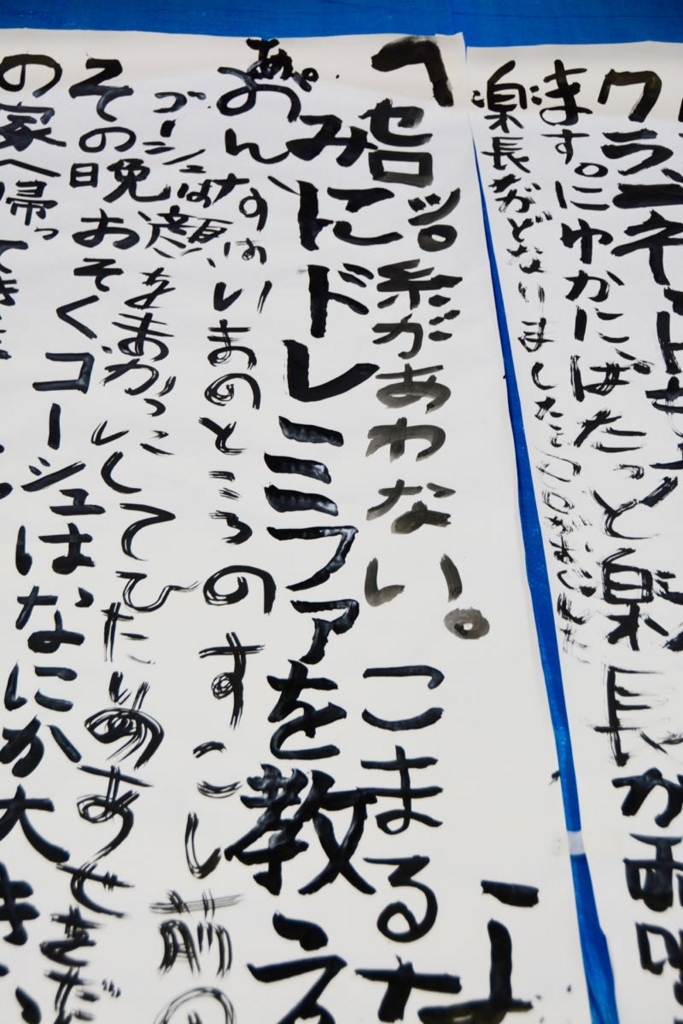 クラリネットも
ます。にわかにぱたっと楽長が両
楽長がどなりました
「セロッ。糸があわない。こまるな
みにドレミファを教え
あ。
おん
いまのところのすこし前の
ゴーシュは顔をまっかにしてひたいにあせをだ
その晩おそくゴーシュはなにか大き
の家へ帰ってき